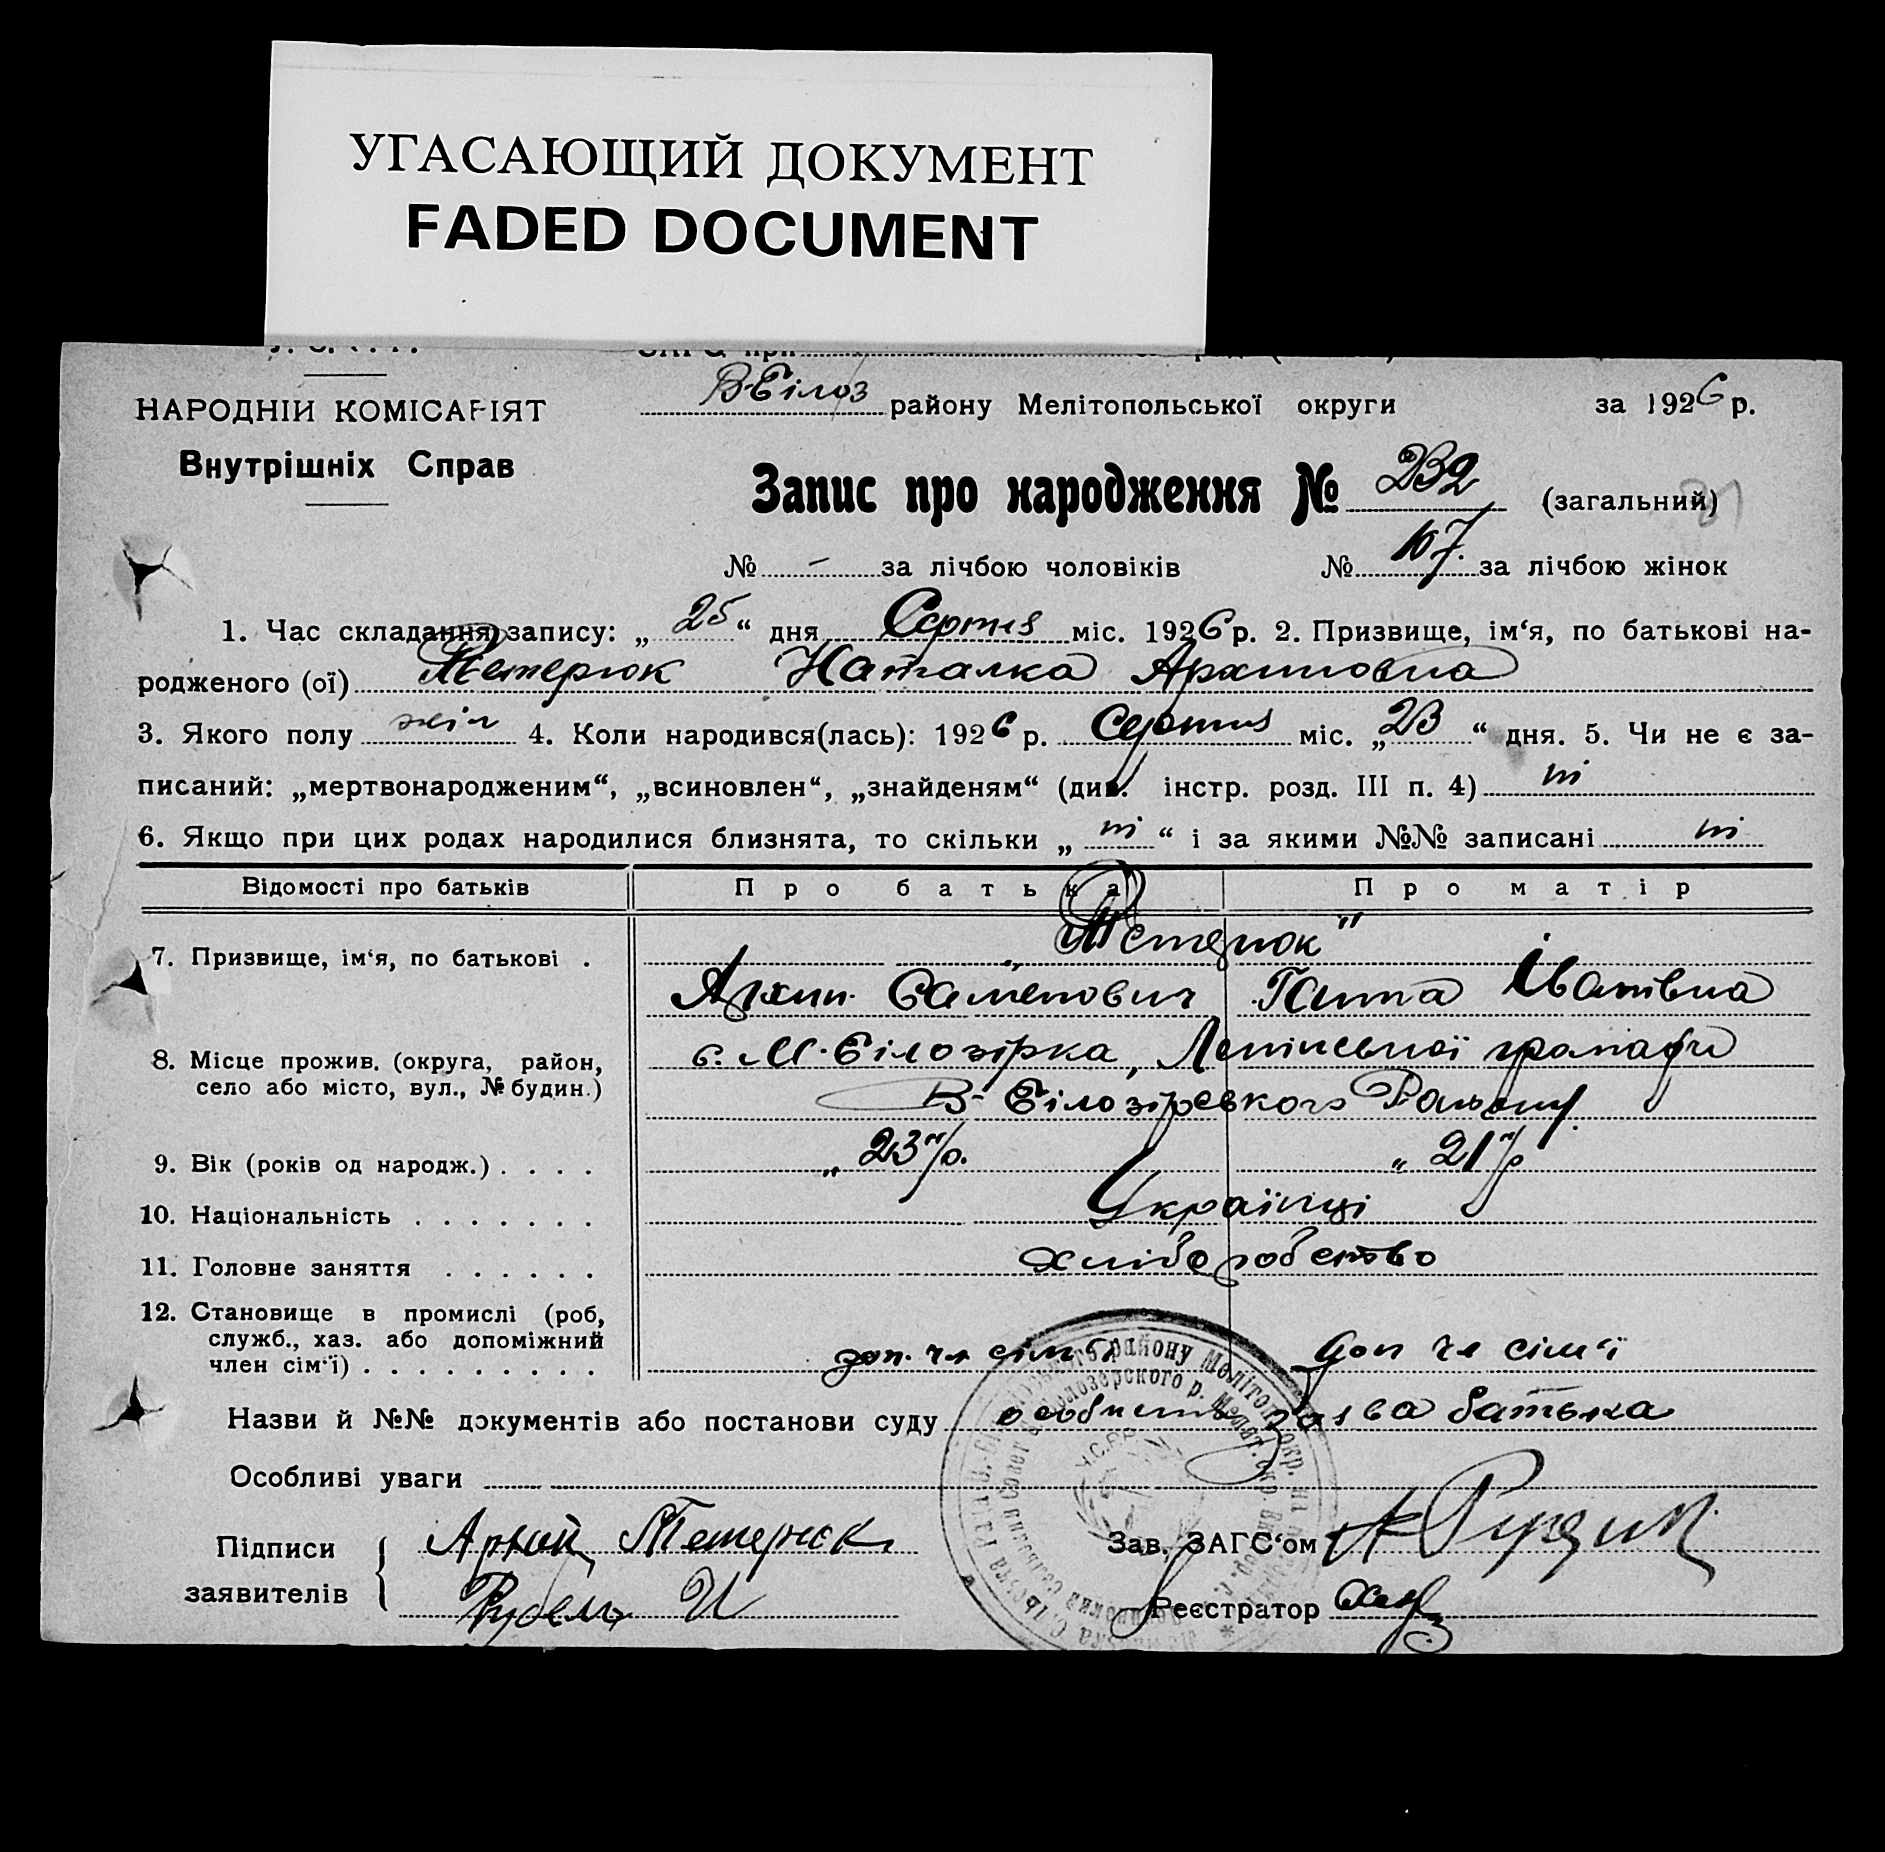 УГАСАЮЩИЙ ДОКУМЕНТ
FADED DOCUMENT
НАРОДНІЙ КОМІСАРІЯТ
Внутрішніх Справ
В-Білоз району Мелітопольської округи за 1926 р.
Запис про народження № 232 (загальний)
№ - за лічбою чоловіків № 107. за лічбою жінок
1. Час складання запису: „ 25 “ дня Серпня міс. 1926 р. 2. Призвище, ім‘я, по батькові на-
родженого (ої) Тетерюк Наталка Архиповна
3. Якого полу жін 4. Коли народився(лась): 1926 р. Серпня міс. „ 23 “ дня. 5. Чи не є за-
писаний: „мертвонародженим“, „всиновлен“, „знайденям“ (див. інстр. розд. III п. 4) ні
6. Якщо при цих родах народилися близнята, то скільки „ ні “ і за якими №№ записані ні
Відомості про батьків Про батька Про матір
7. Призвище, ім‘я, по батькові . „Тетерюк"
Архип. Саменович Ганна Іванівна
8. Місце прожив. (округа, район, с. М. Білозірка, Ленінської громади
село або місто, вул., № будин.) В-Білозірського Району.
9. Вік (років од народж.) . . . . „ 23 р. „ 21 р
10. Національність . . . . . . . Українці
11. Головне заняття . . . . . . хліборобство
12. Становище в промислі (роб,
служб., хаз. або допоміжний
член сім‘ї) . . . . . . . . . доп. чл сім‘ї доп чл сім‘ї
Назви й №№ документів або постанови суду особиста заява батька
Особливі уваги
Підписи Архип Тетерюк Зав. ЗАГС‘ом
заявителів Рубель И Реєстратор